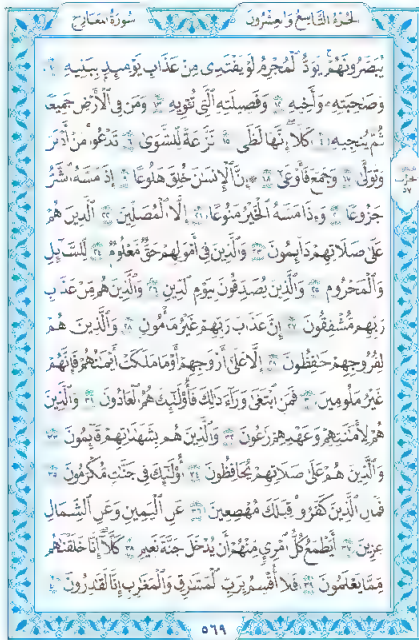 سُورَةُ المَعَارِجِ الجُزْءُ التَّاسِعُ وَالعِشْرُونَ
يُبَصَّرُونَهُمْ يَوَدُّ ٱلْمُجْرِمُ لَوْ يَفْتَدِى مِنْ عَذَابِ يَوْمِئِذٍۭ بِبَنِيهِ ١١
وَصَٰحِبَتِهِۦ وَأَخِيهِ ١٢ وَفَصِيلَتِهِ ٱلَّتِى تُـْٔوِيهِ ١٣ وَمَن فِى ٱلْأَرْضِ جَمِيعًا
ثُمَّ يُنجِيهِ ١٤ كَلَّآ إِنَّهَا لَظَىٰ ١٥ نَزَّاعَةً لِّلشَّوَىٰ ١٦ تَدْعُوا۟ مَنْ أَدْبَرَ
وَتَوَلَّىٰ ١٧ وَجَمَعَ فَأَوْعَىٰٓ ١٨ ۞ إِنَّ ٱلْإِنسَٰنَ خُلِقَ هَلُوعًا ١٩ إِذَا مَسَّهُ ٱلشَّرُّ
جَزُوعًا ٢٠ وَإِذَا مَسَّهُ ٱلْخَيْرُ مَنُوعًا ٢١ إِلَّا ٱلْمُصَلِّينَ ٢٢ ٱلَّذِينَ هُمْ
عَلَىٰ صَلَاتِهِمْ دَآئِمُونَ ٢٣ وَٱلَّذِينَ فِىٓ أَمْوَٰلِهِمْ حَقٌّ مَّعْلُومٌ ٢٤ لِّلسَّآئِلِ
وَٱلْمَحْرُومِ ٢٥ وَٱلَّذِينَ يُصَدِّقُونَ بِيَوْمِ ٱلدِّينِ ٢٦ وَٱلَّذِينَ هُم مِّنْ عَذَابِ
رَبِّهِم مُّشْفِقُونَ ٢٧ إِنَّ عَذَابَ رَبِّهِمْ غَيْرُ مَأْمُونٍ ٢٨ وَٱلَّذِينَ هُمْ
لِفُرُوجِهِمْ حَٰفِظُونَ ٢٩ إِلَّا عَلَىٰٓ أَزْوَٰجِهِمْ أَوْ مَا مَلَكَتْ أَيْمَٰنُهُمْ فَإِنَّهُمْ
غَيْرُ مَلُومِينَ ٣٠ فَمَنِ ٱبْتَغَىٰ وَرَآءَ ذَٰلِكَ فَأُو۟لَٰٓئِكَ هُمُ ٱلْعَادُونَ ٣١ وَٱلَّذِينَ
هُمْ لِأَمَٰنَٰتِهِمْ وَعَهْدِهِمْ رَٰعُونَ ٣٢ وَٱلَّذِينَ هُم بِشَهَٰدَٰتِهِمْ قَآئِمُونَ ٣٣
وَٱلَّذِينَ هُمْ عَلَىٰ صَلَاتِهِمْ يُحَافِظُونَ ٣٤ أُو۟لَٰٓئِكَ فِى جَنَّٰتٍ مُّكْرَمُونَ ٣٥
فَمَالِ ٱلَّذِينَ كَفَرُوا۟ قِبَلَكَ مُهْطِعِينَ ٣٦ عَنِ ٱلْيَمِينِ وَعَنِ ٱلشِّمَالِ
عِزِينَ ٣٧ أَيَطْمَعُ كُلُّ ٱمْرِئٍ مِّنْهُمْ أَن يُدْخَلَ جَنَّةَ نَعِيمٍ ٣٨ كَلَّآ إِنَّا خَلَقْنَٰهُم
مِّمَّا يَعْلَمُونَ ٣٩ فَلَآ أُقْسِمُ بِرَبِّ ٱلْمَشَٰرِقِ وَٱلْمَغَٰرِبِ إِنَّا لَقَٰدِرُونَ ٤٠
٥٦٩